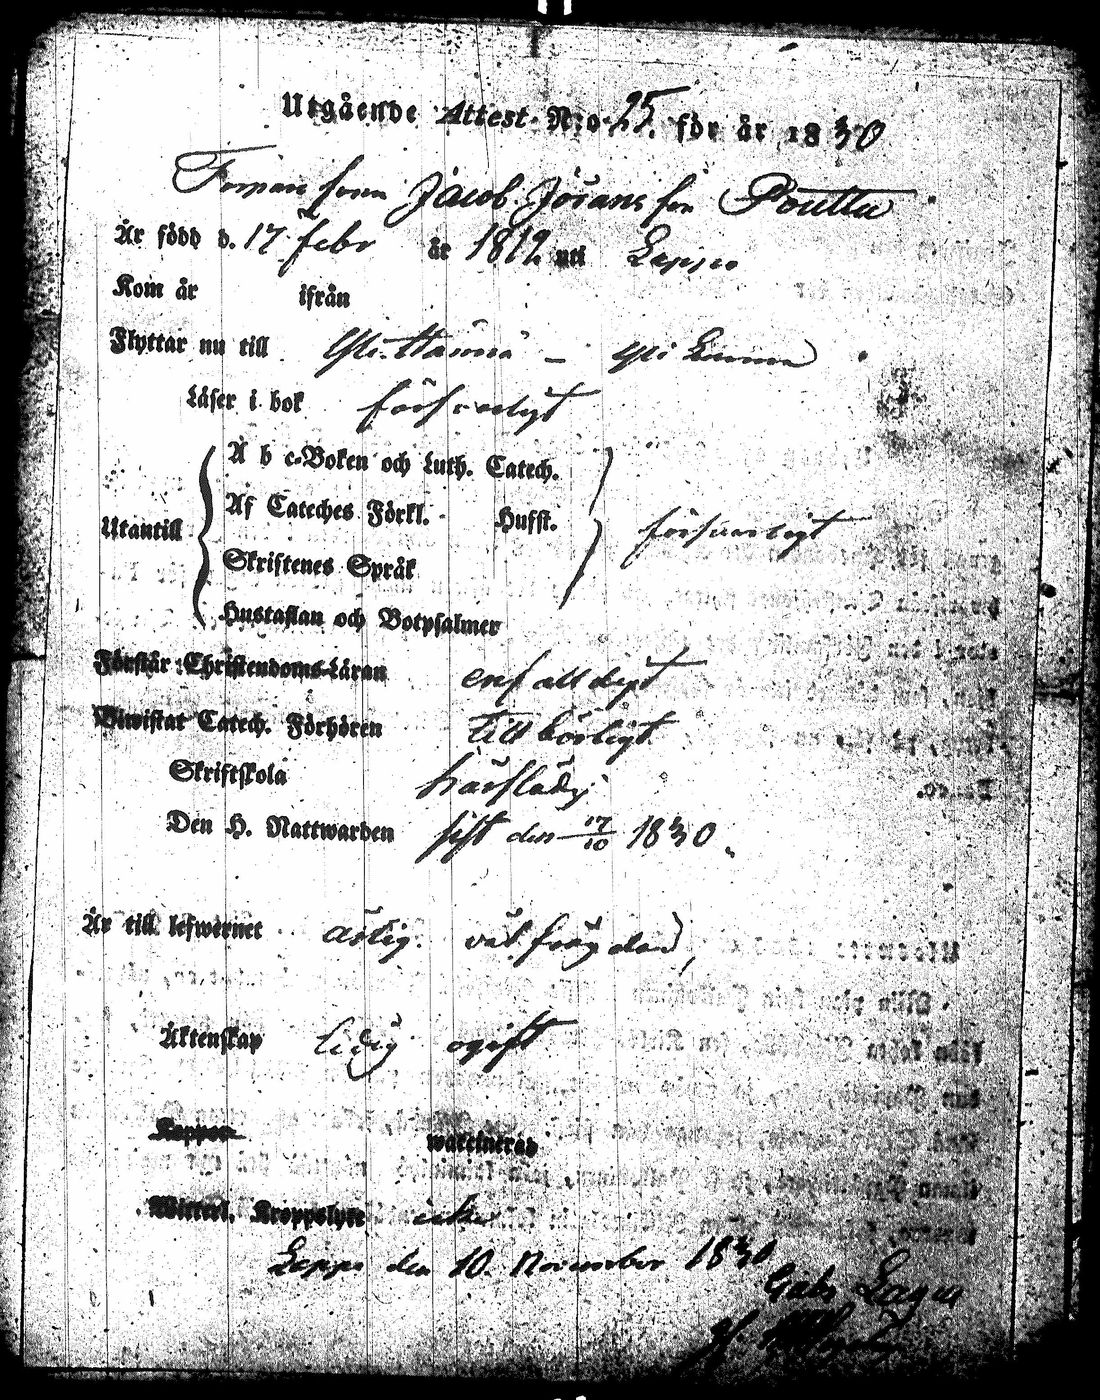 Utgående Attest N:o 25. för år 1830
Torpare sonen Jacob Jörans son Pouttu
Är född d. 17 Febr år 1812 uti Lappo
Kom år ifrån
Flyttar nu till Yli
Läser i bok försvarligt
A b c-Boken och Luth. Catech.
Af Cateches Förkl. Hufst.
Utantill försvarligt
Skriftenes Språk
Hustaflan och Botpsalmer
Förstår Christendoms-Läran enfalldigt
Biwistat Catech. Förhören Tillbörligt
Skriftskola härstädes
Den H. Nattwarden sist den 17/10 1830
Är till lefwernet ärlig. väl frägdad,
Äktenskap ledig ogift
Koppor waccinerad
Witterl. Kroppslyte icke
Lappo den 10. November 1830
Gabr Lagus